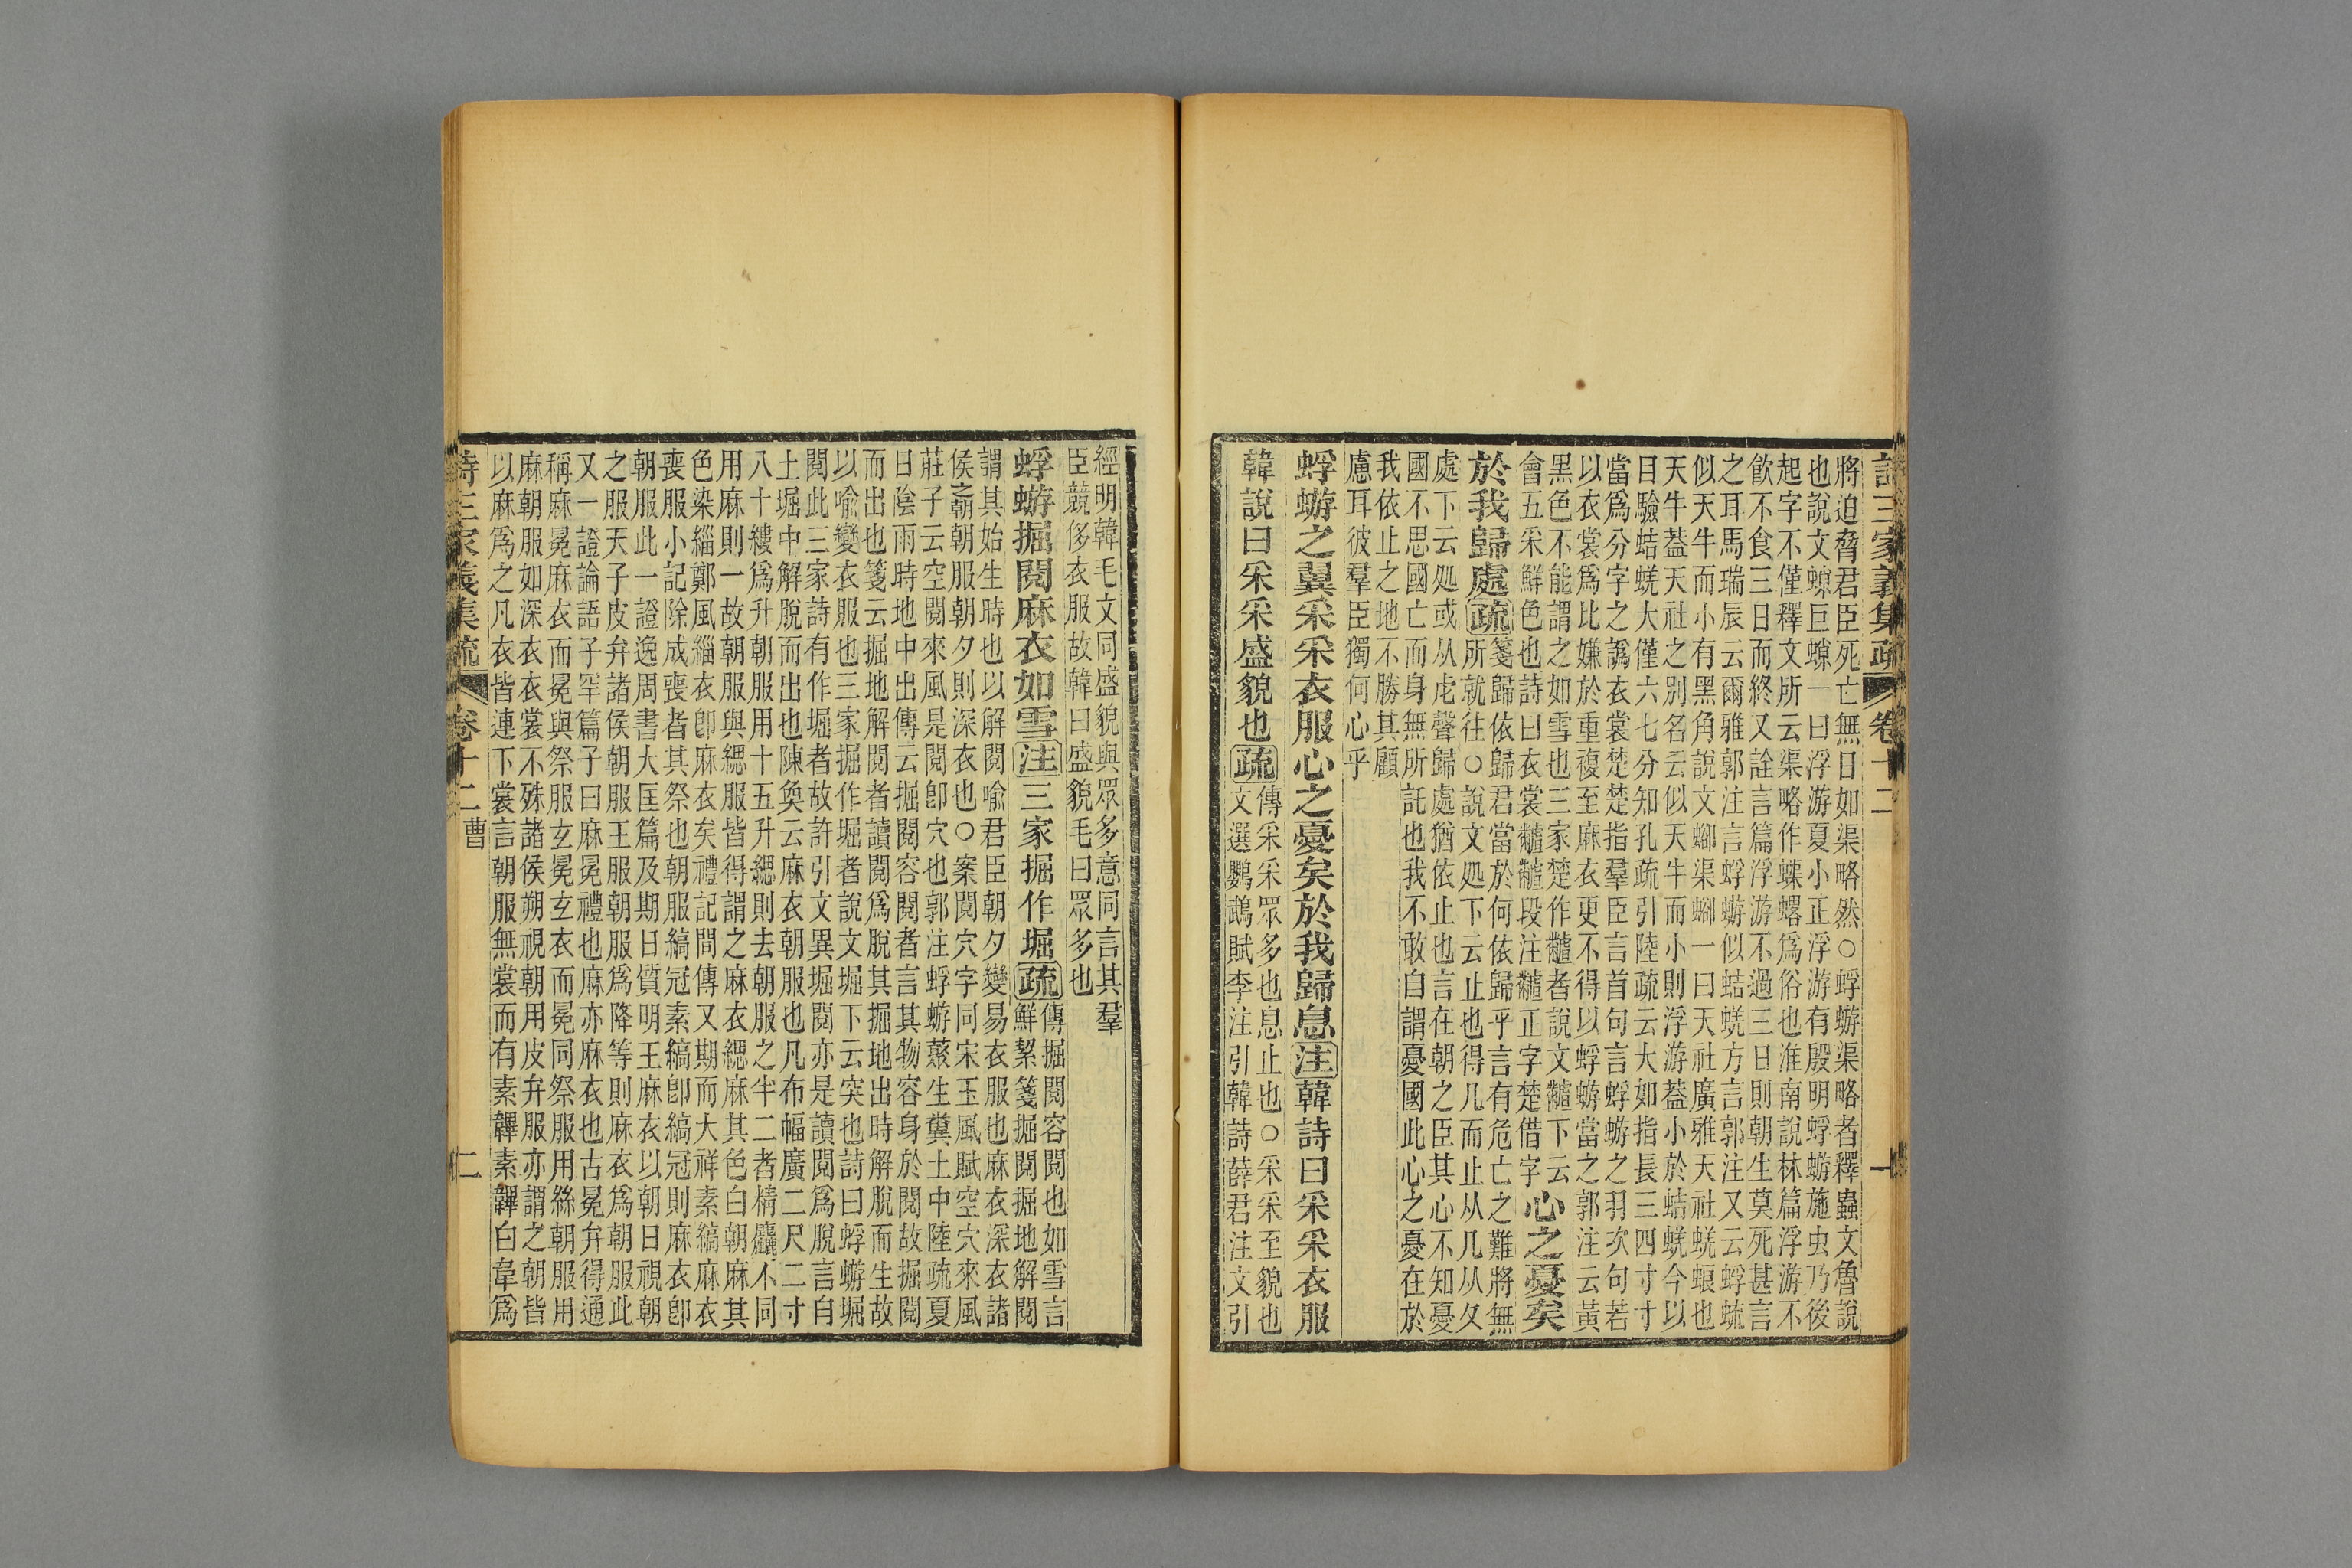 詩三家義集疏 卷十二 一
將迫脅君臣死亡無日如渠略然○蜉蝣渠略者釋蟲文魯說
也說文蟟巨蟟一曰浮游夏小正浮游有殷明蜉蝣施虫乃後
起字不僅釋文所云渠略作蟝䗉爲俗也淮南說林篇浮游不
飲不食三日而終又詮言篇浮游不過三日則朝生莫死甚言
之耳馬瑞辰云爾雅郭注言蜉蝣似蛣蜣方言郭注又云蜉蝣
似天牛而小有黑角說文蝍渠蝍一曰天社廣雅天社蜣蜋也
天牛葢天社之別名云似天牛而小則浮游葢小於蛣蜣今以
目驗蛣蜣大僅六七分知孔疏引陸疏云大如指長三四寸寸
當爲分字之譌衣裳楚楚指羣臣言首句言蜉蝣之羽次句若
以衣裳爲比嫌於重複至麻衣更不得以蜉蝣當之郭注云黃
黑色不能謂之如雪也三家楚作髗者說文髗下云
會五采鮮色也詩曰衣裳髗髗段注髗正字楚借字
心之憂矣
於我歸處疏
箋歸依歸君當於何依歸乎言有危亡之難將無
所就往○說文処下云止也得几而止从几从夂
處下云処或从虍聲歸處猶依止也言在朝之臣其心不知憂
國不思國亡而身無所託也我不敢自謂憂國此心之憂在於
我依止之地不勝其顧
慮耳彼羣臣獨何心乎
蜉蝣之翼采采衣服心之憂矣於我歸息注韓詩曰采采衣服
韓說曰采采盛貌也疏
傳采采眾多也息止也○采采至貌也
文選鸚鵡賦李注引韓詩薛君注文引
經明韓毛文同盛貌與眾多意同言其羣
臣競侈衣服故韓曰盛貌毛曰眾多也
蜉蝣掘閱麻衣如雪注三家掘作堀疏
傳掘閱容閱也如雪言
鮮絜箋掘閱掘地解閱
謂其始生時也以解閱喻君臣朝夕變易衣服也麻衣深衣諸
侯之朝朝服朝夕則深衣也○案閱穴字同宋玉風賦空穴來風
莊子云空閱來風是閱卽穴也郭注蜉蝣藂生糞土中陸疏夏
日陰雨時地中出傳云掘閱容閱者言其物容身於閱故掘閱
而出也箋云掘地解閱者讀閱爲脫其掘地出時解脫而生故
以喻變衣服也三家掘作堀者說文堀下云突也詩曰蜉蝣堀
閱此三家詩有作堀者故許引文異堀閱亦是讀閱爲脫言自
土堀中解脫而出也陳奐云麻衣朝服也凡布幅廣二尺二寸
八十縷爲升朝服用十五升緦則去朝服之半二者精麤不同
用麻則一故朝服與緦服皆得謂之麻衣緦麻其色白朝麻其
色染緇鄭風緇衣卽麻衣矣禮記間傳又期而大祥素縞麻衣
喪服小記除成喪者其祭也朝服縞冠素縞卽縞冠則麻衣卽
朝服此一證逸周書大匡篇及期日質明王麻衣以朝日視朝
之服天子皮弁諸侯朝服王服朝服爲降等則麻衣爲朝服此
又一證論語子罕篇子曰麻冕禮也麻亦麻衣也古冕弁得通
稱麻冕麻衣而冕與祭服玄冕玄衣而冕同祭服用絲朝服用
麻朝服如深衣衣裳不殊諸侯朔視朝用皮弁服亦謂之朝皆
以麻爲之凡衣皆連下裳言朝服無裳而有素韠素韠白韋爲
詩三家義集疏 卷十二 曹 二